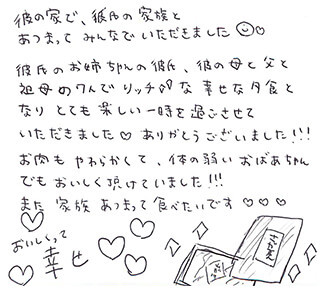 彼の家で、彼氏の家族と
あつまって みんなでいただきました
彼氏のお姉ちゃんの彼氏、彼の母と父と
祖母の7人でリッチな幸せな夕食と
なり とても楽しい一時を過ごさせて
いただきました♡ ありがとうございました!!!
お肉もやわらかくて、体の弱いおばあちゃん
でもおいしく頂けていました!!!
また 家族 あつまって食べたいです♡♡♡
おいしくって
幸せ